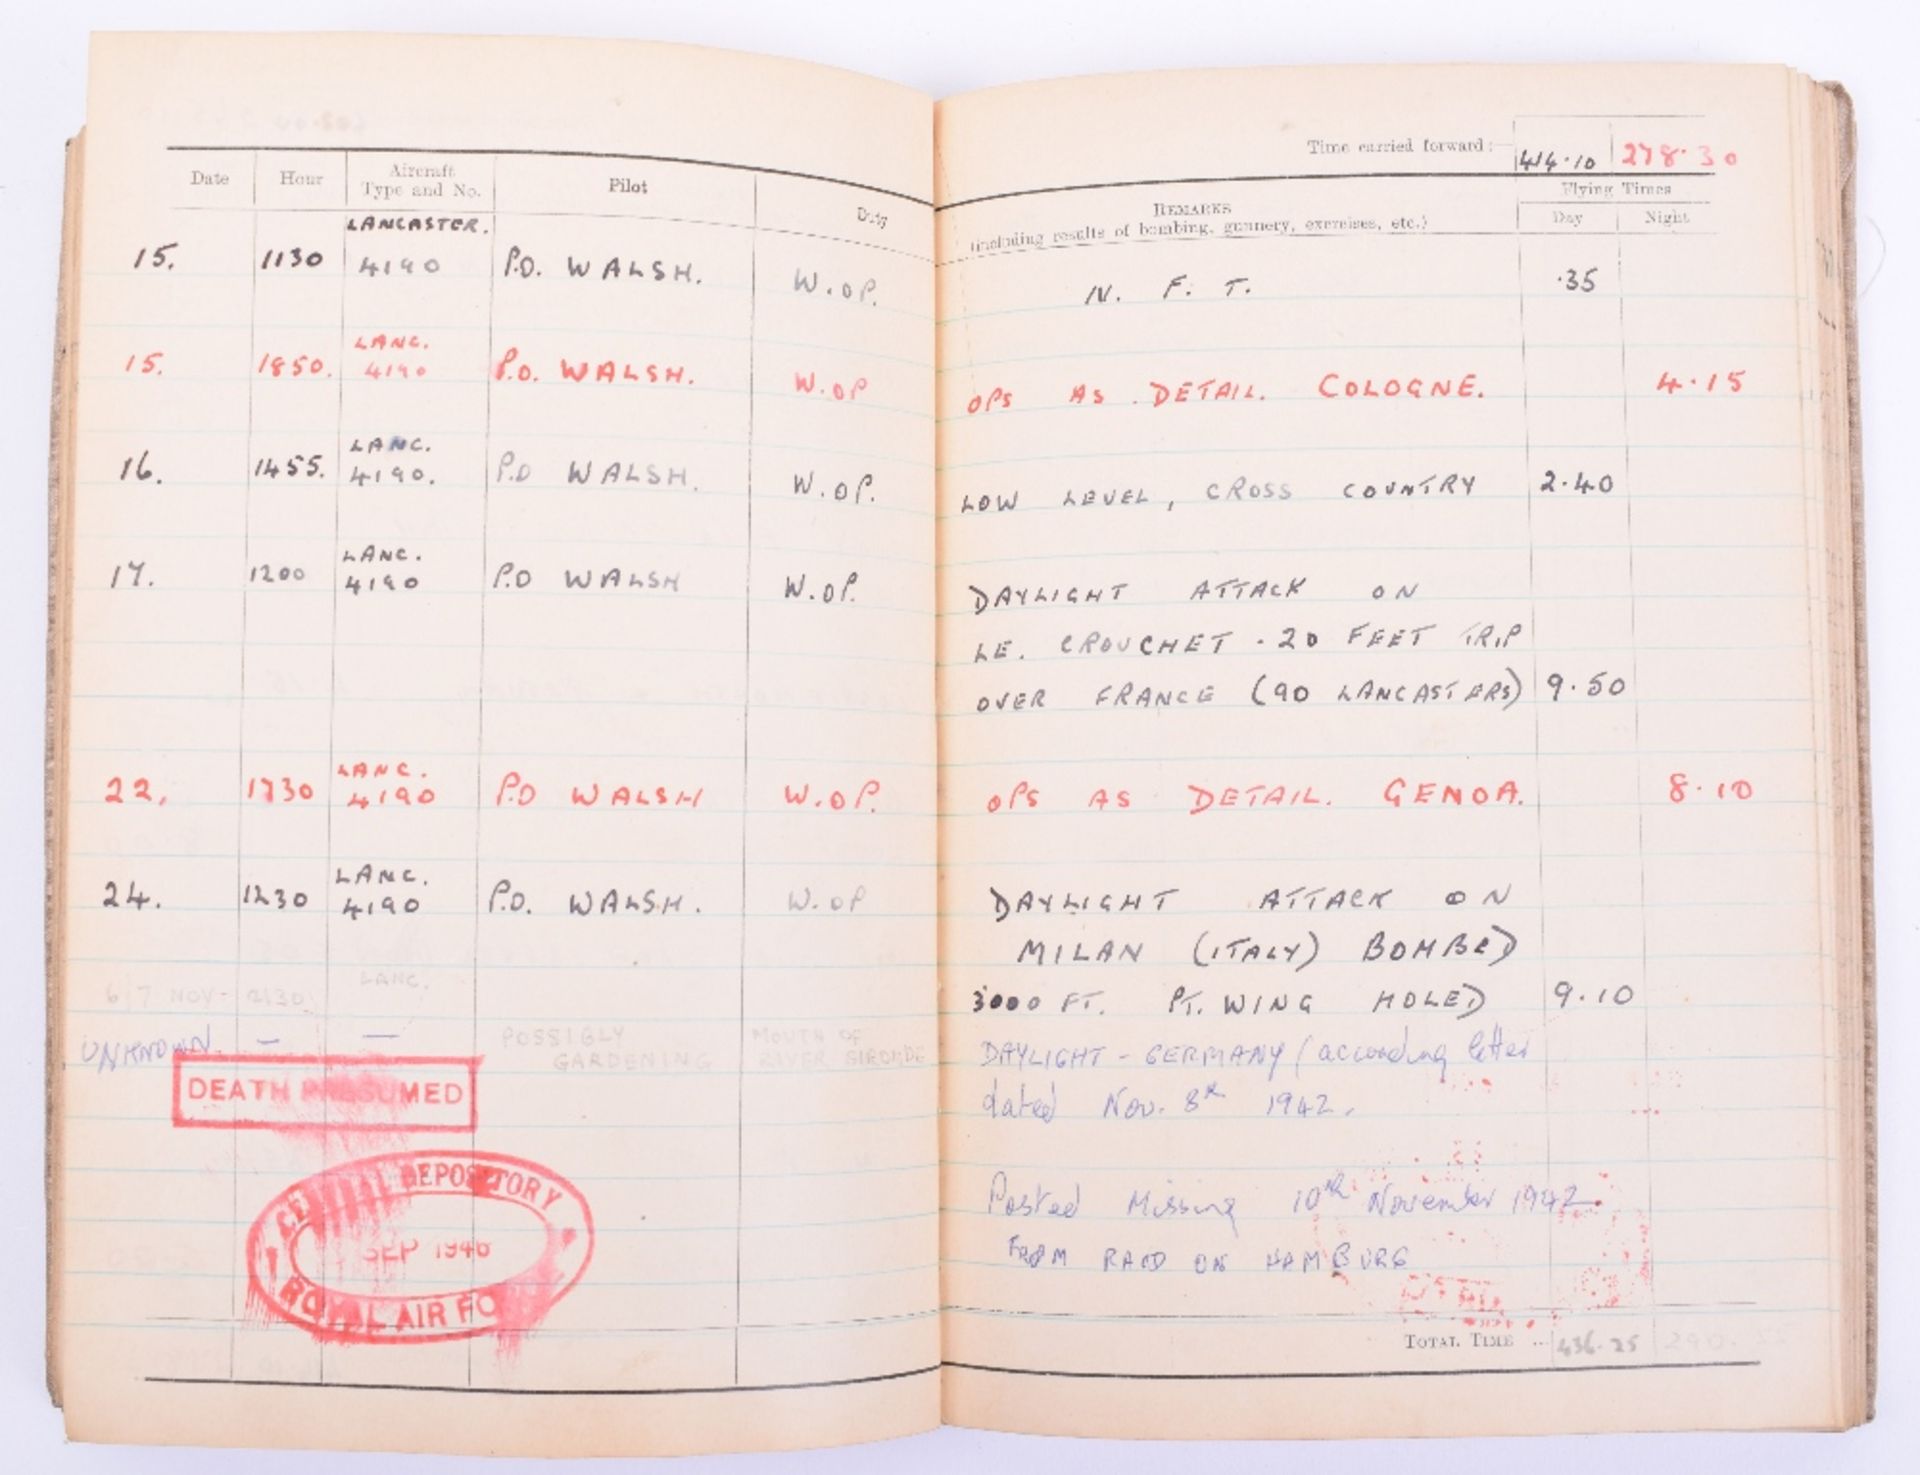 Time carried forward :— 414·10 278·30
Date Hour Aircraft Type and No. Pilot Duty REMARKS (including results of bombing, gunnery, exercises, etc.) Flying Times Day Night
LANCASTER.
15. 1130 4190 P.O. WALSH. W.OP. N. F. T. ·35
LANC.
15. 1850. 4190 P.O. WALSH. W.OP OPS AS DETAIL. COLOGNE. 4·15
LANC.
16. 1455. 4190. P.O WALSH. W.OP. LOW LEVEL, CROSS COUNTRY 2·40
LANC.
17. 1200 4190 P.O WALSH W.OP. DAYLIGHT ATTACK ON
LE. CROUCHET ·20 FEET TRIP
OVER FRANCE (90 LANCASTERS) 9·50
LANC.
22. 1730 4190 P.O WALSH W.OP. OPS AS DETAIL. GENOA. 8·10
LANC.
24. 1230 4190 P.O. WALSH. W.OP DAYLIGHT ATTACK ON
MILAN (ITALY) BOMBED
3000 FT. PT. WING HOLED 9·10
6/7 NOV- 2130 LANC.
UNKNOWN. — — POSSIBLY GARDENING MOUTH OF RIVER GIRONDE
DAYLIGHT - GERMANY (according letter
dated Nov. 8th 1942.
DEATH PRESUMED
CENTRAL DEPOSITORY
SEP 1946
ROYAL AIR FO
Posted Missing 10th November 1942.
FROM RAID ON HAMBURG
TOTAL TIME ... 436·25 290·